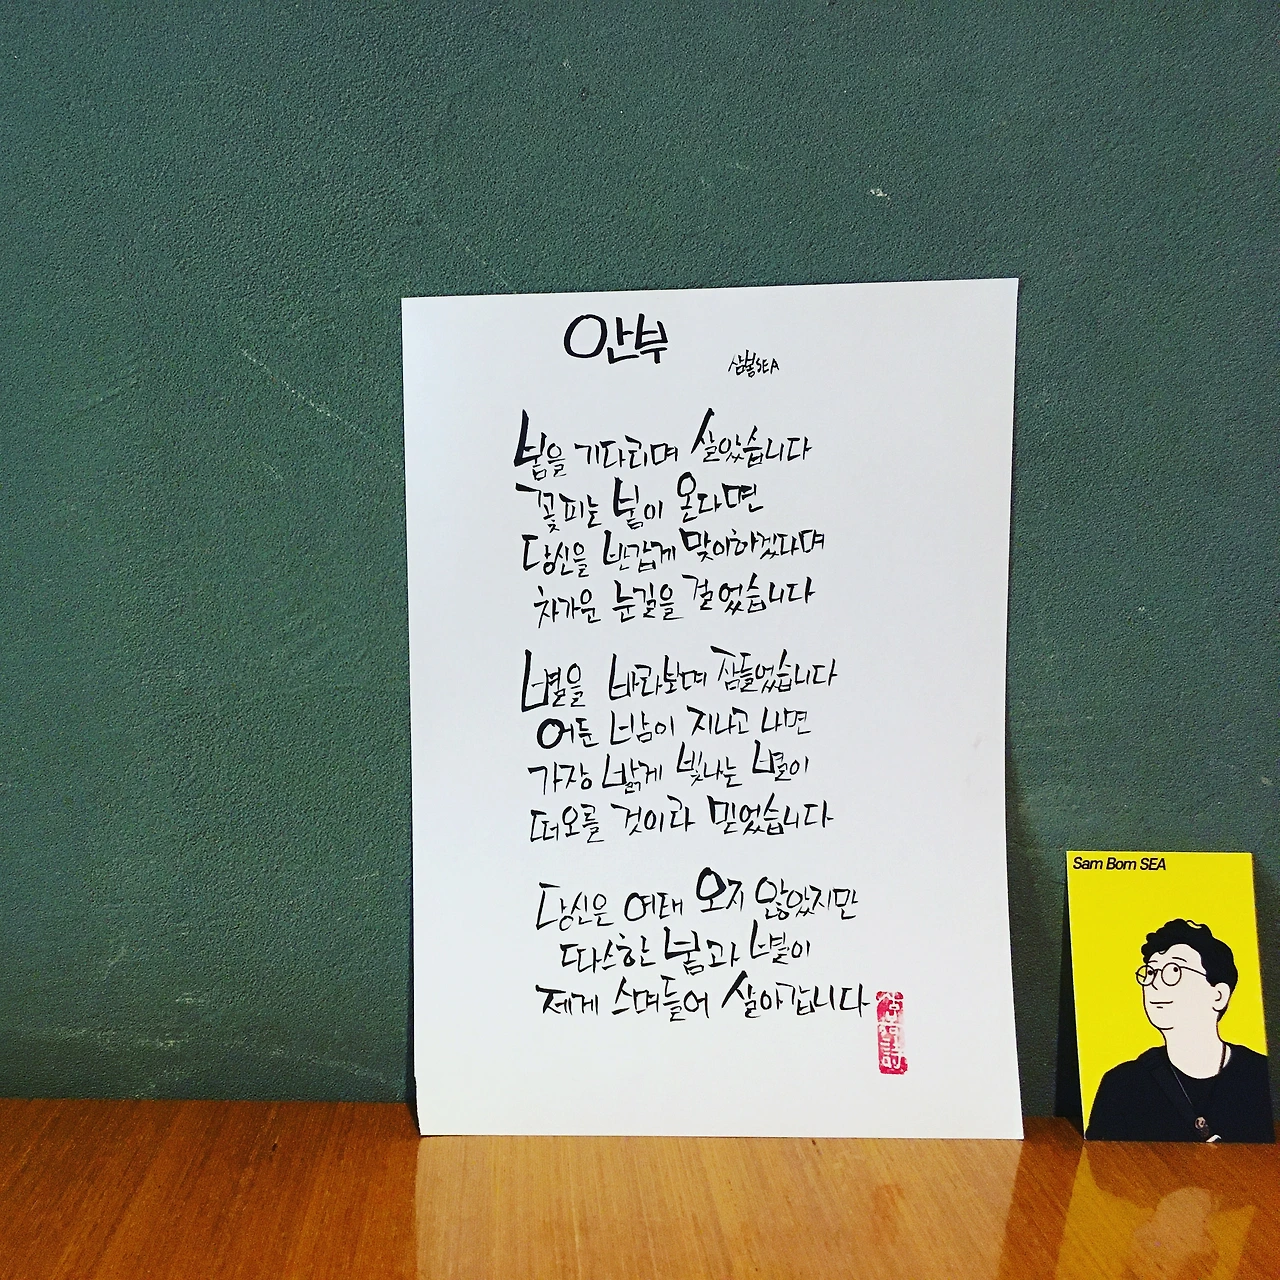 안부
삼봄SEA
봄을 기다리며 살았습니다
꽃피는 봄이 온다면
당신을 반갑게 맞이하겠다며
차가운 눈길을 걸었습니다
별을 바라보며 잠들었습니다
어둔 밤이 지나고 나면
가장 밝게 빛나는 별이
떠오를 것이라 믿었습니다
당신은 여태 오지 않았지만
따스한 봄과 별이
제게 스며들어 살아갑니다
Sam Bom SEA